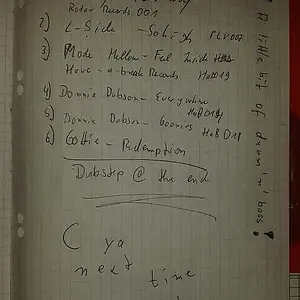 Rodor Records 001
2) L-Side - Solid FLV007
3) Mode Mellow - Feel Inside
Have-a-break Records HaB019
4) Donnie Dubson - Everytime
HaB019
5) Donnie Dubson - Goonies
HaB019
6) Gottie - Redemption
Dubstep @ the end
C ya
next time
A little bit of drum 'n' bass!